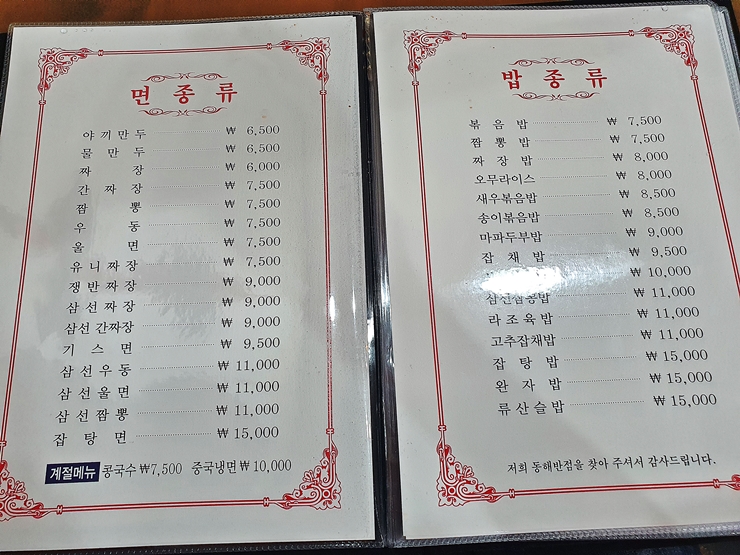 면 종 류
야 끼 만 두 ₩ 6,500
물 만 두 ₩ 6,500
짜 장 ₩ 6,000
간 짜 장 ₩ 7,500
짬 뽕 ₩ 7,500
우 동 ₩ 7,500
울 면 ₩ 7,500
유 니 짜 장 ₩ 7,500
쟁 반 짜 장 ₩ 9,000
삼 선 짜 장 ₩ 9,000
삼선 간짜장 ₩ 9,000
기 스 면 ₩ 9,500
삼 선 우 동 ₩ 11,000
삼 선 울 면 ₩ 11,000
삼 선 짬 뽕 ₩ 11,000
잡 탕 면 ₩ 15,000
계절메뉴 콩국수 ₩7,500 중국냉면 ₩ 10,000
밥 종 류
볶 음 밥 ₩ 7,500
짬 뽕 밥 ₩ 7,500
짜 장 밥 ₩ 8,000
오무라이스 ₩ 8,000
새우볶음밥 ₩ 8,500
송이볶음밥 ₩ 8,500
마파두부밥 ₩ 9,000
잡 채 밥 ₩ 9,500
₩ 10,000
삼선짬뽕밥 ₩ 11,000
라 조 육 밥 ₩ 11,000
고추잡채밥 ₩ 11,000
잡 탕 밥 ₩ 15,000
완 자 밥 ₩ 15,000
류 산 슬 밥 ₩ 15,000
저희 동해반점을 찾아 주셔서 감사드립니다.